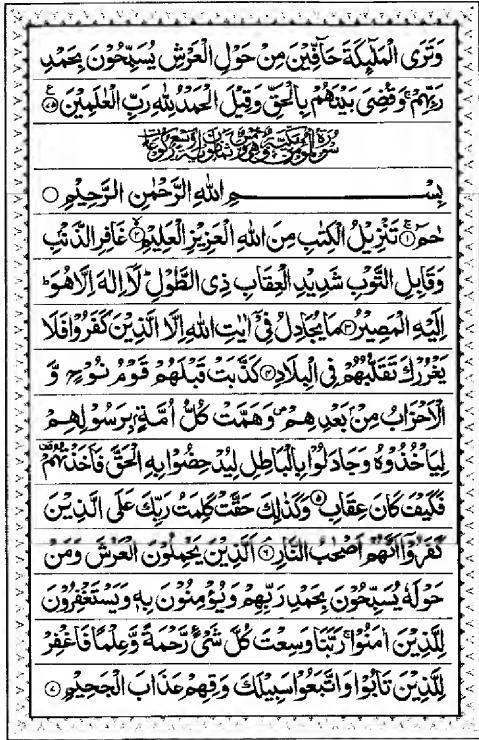 وَتَرَى الْمَلٰٓئِكَةَ حَآفِّيْنَ مِنْ حَوْلِ الْعَرْشِ يُسَبِّحُوْنَ بِحَمْدِ
رَبِّهِمْ ۚ وَقُضِيَ بَيْنَهُمْ بِالْحَقِّ وَقِيْلَ الْحَمْدُ لِلّٰهِ رَبِّ الْعٰلَمِيْنَ ۝۷۵
بِسْمِ اللهِ الرَّحْمٰنِ الرَّحِيْمِ ۝
حٰمٓ ۝۱ تَنْزِيْلُ الْكِتٰبِ مِنَ اللهِ الْعَزِيْزِ الْعَلِيْمِ ۝۲ غَافِرِ الذَّنْۢبِ
وَقَابِلِ التَّوْبِ شَدِيْدِ الْعِقَابِ ذِي الطَّوْلِ ؕ لَآ اِلٰهَ اِلَّا هُوَ ؕ
اِلَيْهِ الْمَصِيْرُ ۝۳ مَا يُجَادِلُ فِيْٓ اٰيٰتِ اللهِ اِلَّا الَّذِيْنَ كَفَرُوْا فَلَا
يَغْرُرْكَ تَقَلُّبُهُمْ فِي الْبِلَادِ ۝۴ كَذَّبَتْ قَبْلَهُمْ قَوْمُ نُوْحٍ وَّ
الْاَحْزَابُ مِنْۢ بَعْدِهِمْ ۪ وَهَمَّتْ كُلُّ اُمَّةٍۭ بِرَسُوْلِهِمْ
لِيَاْخُذُوْهُ وَجَادَلُوْا بِالْبَاطِلِ لِيُدْحِضُوْا بِهِ الْحَقَّ فَاَخَذْتُهُمْ
فَكَيْفَ كَانَ عِقَابِ ۝۵ وَكَذٰلِكَ حَقَّتْ كَلِمَتُ رَبِّكَ عَلَى الَّذِيْنَ
كَفَرُوْٓا اَنَّهُمْ اَصْحٰبُ النَّارِ ۝۶ اَلَّذِيْنَ يَحْمِلُوْنَ الْعَرْشَ وَمَنْ
حَوْلَهٗ يُسَبِّحُوْنَ بِحَمْدِ رَبِّهِمْ وَيُؤْمِنُوْنَ بِهٖ وَيَسْتَغْفِرُوْنَ
لِلَّذِيْنَ اٰمَنُوْا ۚ رَبَّنَا وَسِعْتَ كُلَّ شَيْءٍ رَّحْمَةً وَّعِلْمًا فَاغْفِرْ
لِلَّذِيْنَ تَابُوْا وَاتَّبَعُوْا سَبِيْلَكَ وَقِهِمْ عَذَابَ الْجَحِيْمِ ۝۷